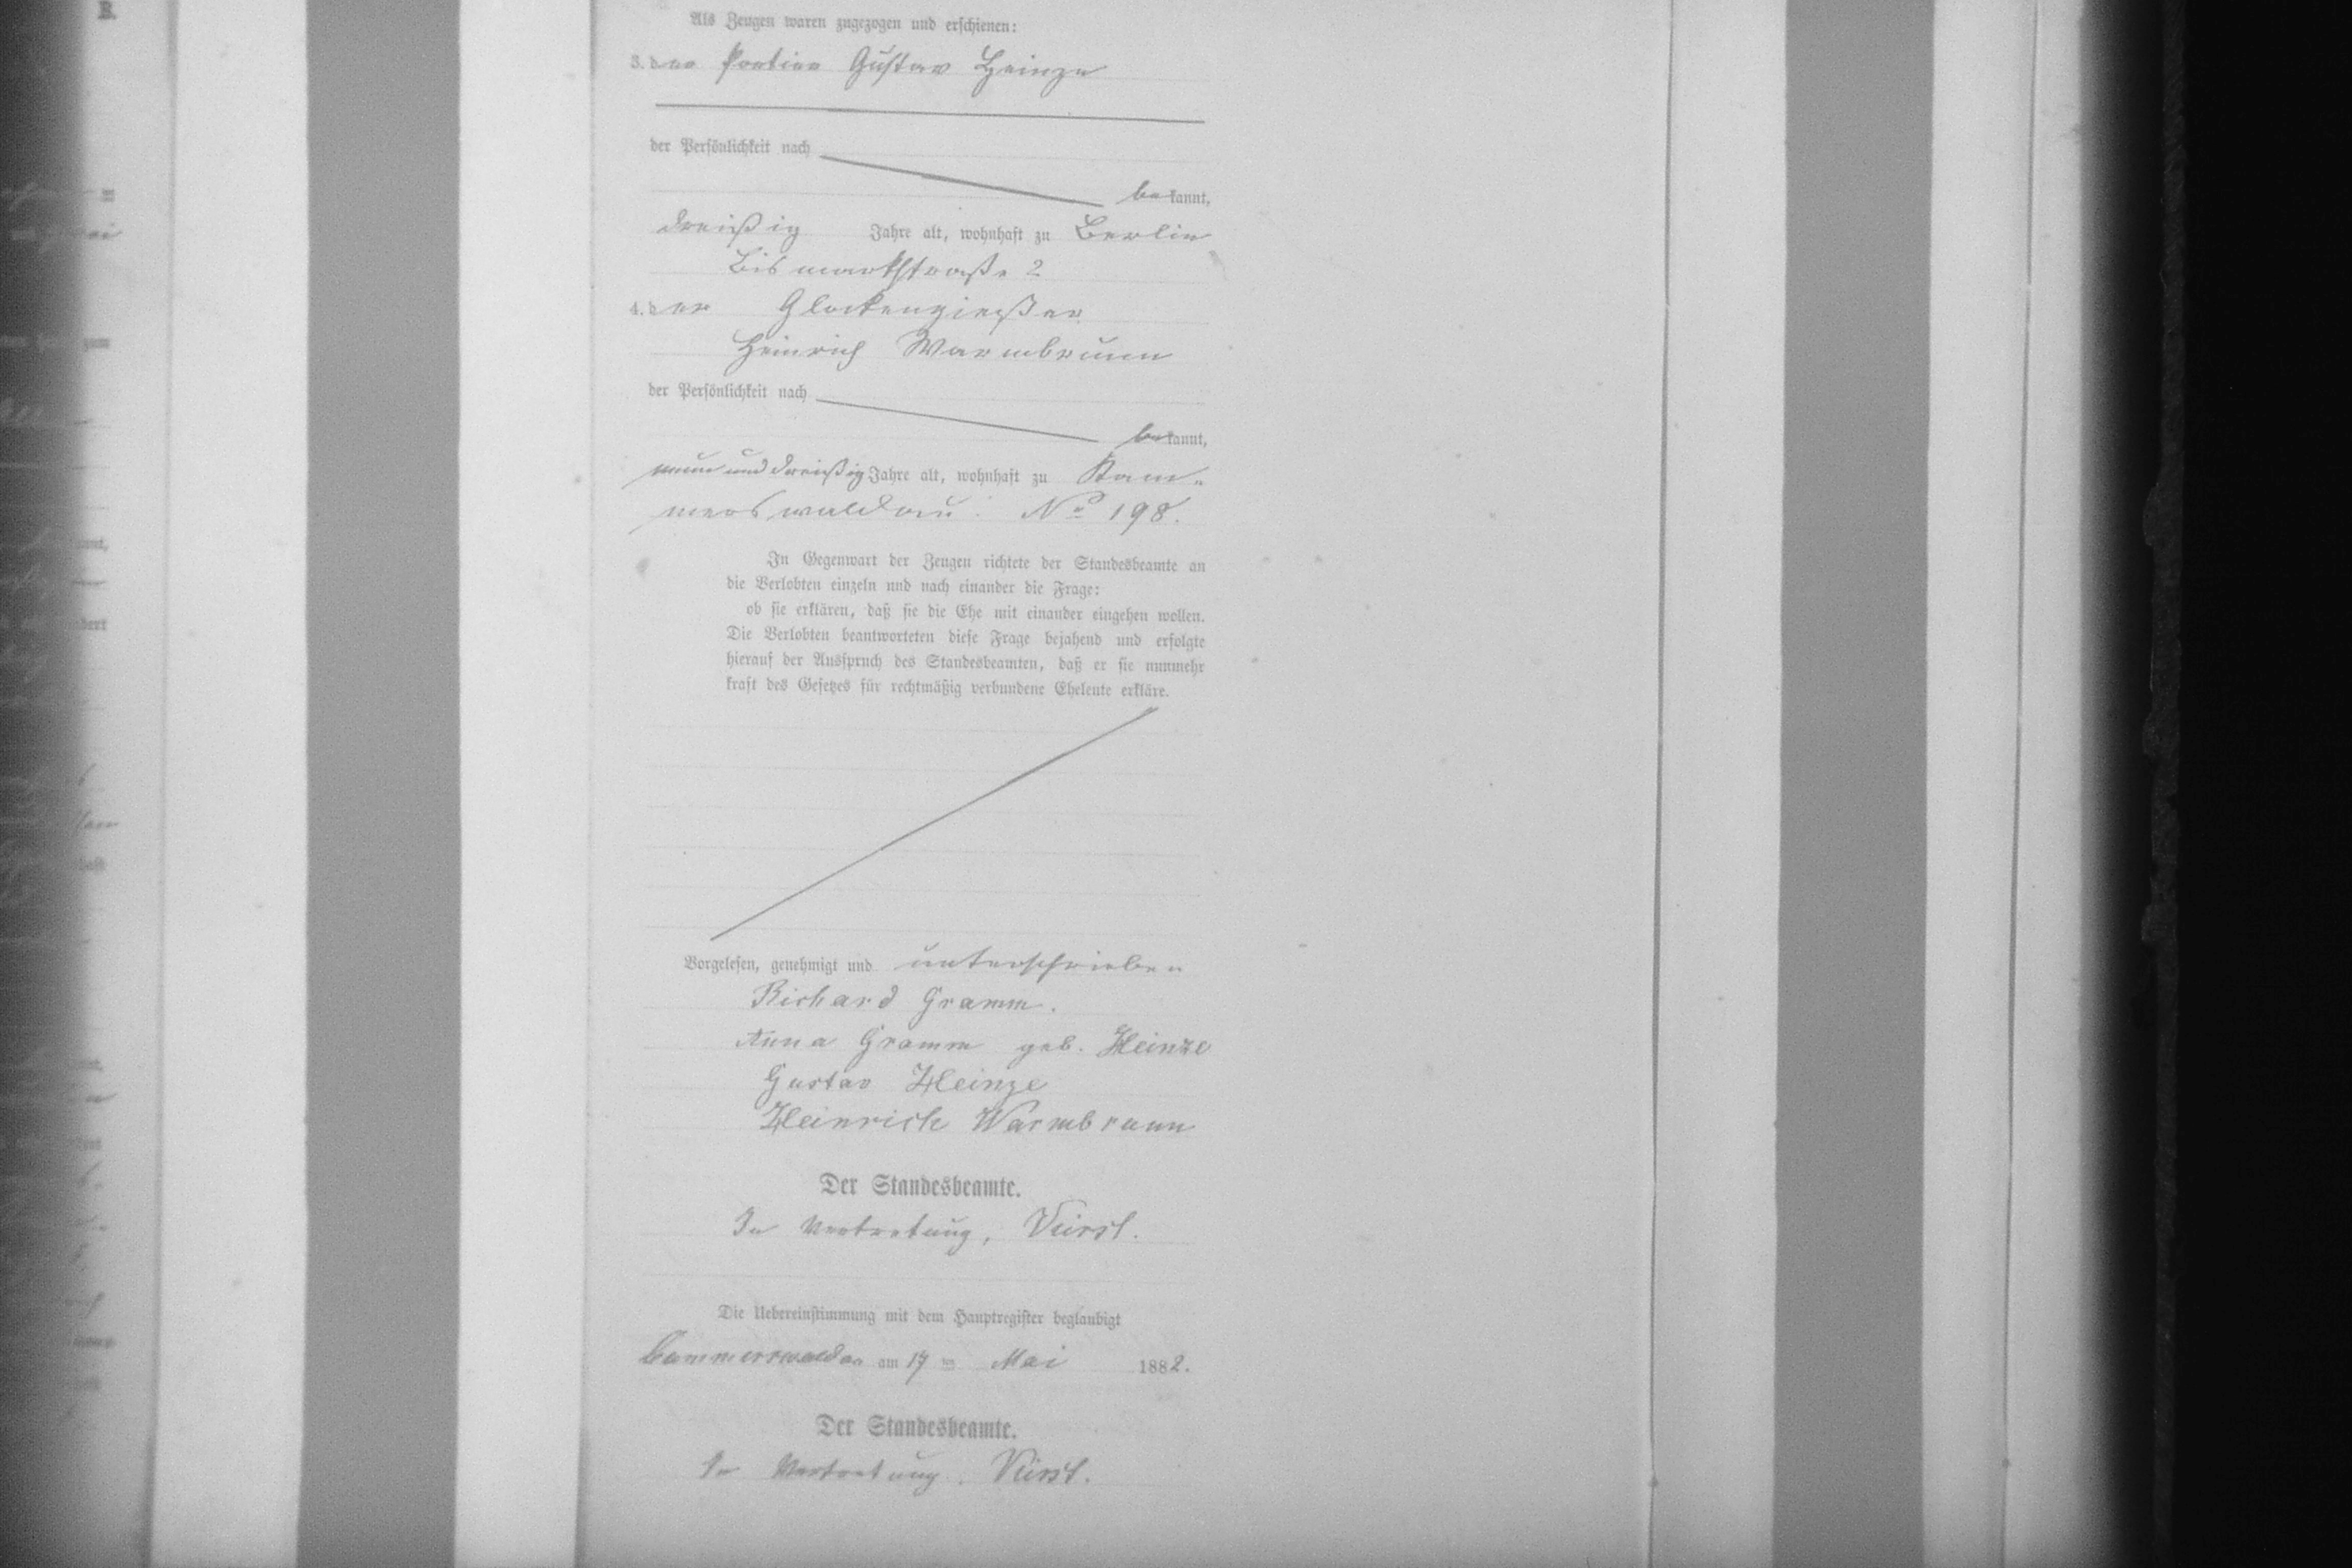 B.
Als Zeugen waren zugezogen und erschienen:
3. der Portier Gustav Heinze
der Persönlichkeit nach
bekannt,
dreißig Jahre alt, wohnhaft zu Berlin
Bismarkstraße 2
4. der Glockengießer
Heinrich Warmbrunn
der Persönlichkeit nach
bekannt,
neun und dreißig Jahre alt, wohnhaft zu Kam-
merswaldau. No 198.
In Gegenwart der Zeugen richtete der Standesbeamte an
die Verlobten einzeln und nach einander die Frage:
ob sie erklären, daß sie die Ehe mit einander eingehen wollen.
Die Verlobten beantworteten diese Frage bejahend und erfolgte
hierauf der Ausspruch des Standesbeamten, daß er sie nunmehr
kraft des Gesetzes für rechtmäßig verbundene Eheleute erkläre.
Vorgelesen, genehmigt und unterschrieben
Richard Gramm.
Anna Gramm geb. Heinze
Gustav Heinze
Heinrich Warmbrunn
Der Standesbeamte.
In Vertretung,
Die Uebereinstimmung mit dem Hauptregister beglaubigt
Cammerswaldau am 17 ten Mai 1882.
Der Standesbeamte.
In Vertretung.